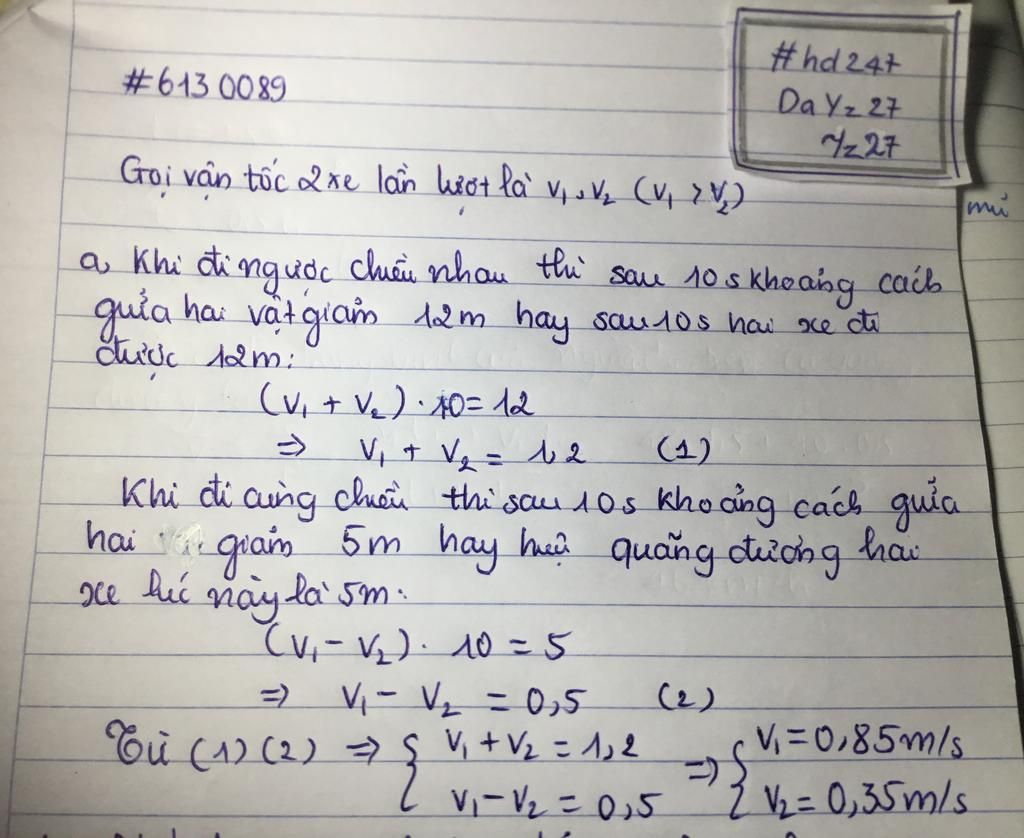 #hd247
Da Yz 27
Yz27
#6130089
Gọi vận tốc 2 xe lần lượt là v₁, v₂ (v₁ > v₂)
a, Khi đi ngược chiều nhau thì sau 10s khoảng cách
giữa hai vật giảm 12m hay sau 10s hai xe đi
được 12m:
(v₁ + v₂) . 10 = 12
⇒ v₁ + v₂ = 1,2 (1)
Khi đi cùng chiều thì sau 10s khoảng cách giữa
hai giảm 5m hay hiệu quãng đường hai
xe lúc này là 5m.
(v₁ - v₂) . 10 = 5
⇒ v₁ - v₂ = 0,5 (2)
Từ (1) (2) ⇒ { v₁ + v₂ = 1,2 ⇒ { v₁ = 0,85m/s
v₁ - v₂ = 0,5 v₂ = 0,35m/s